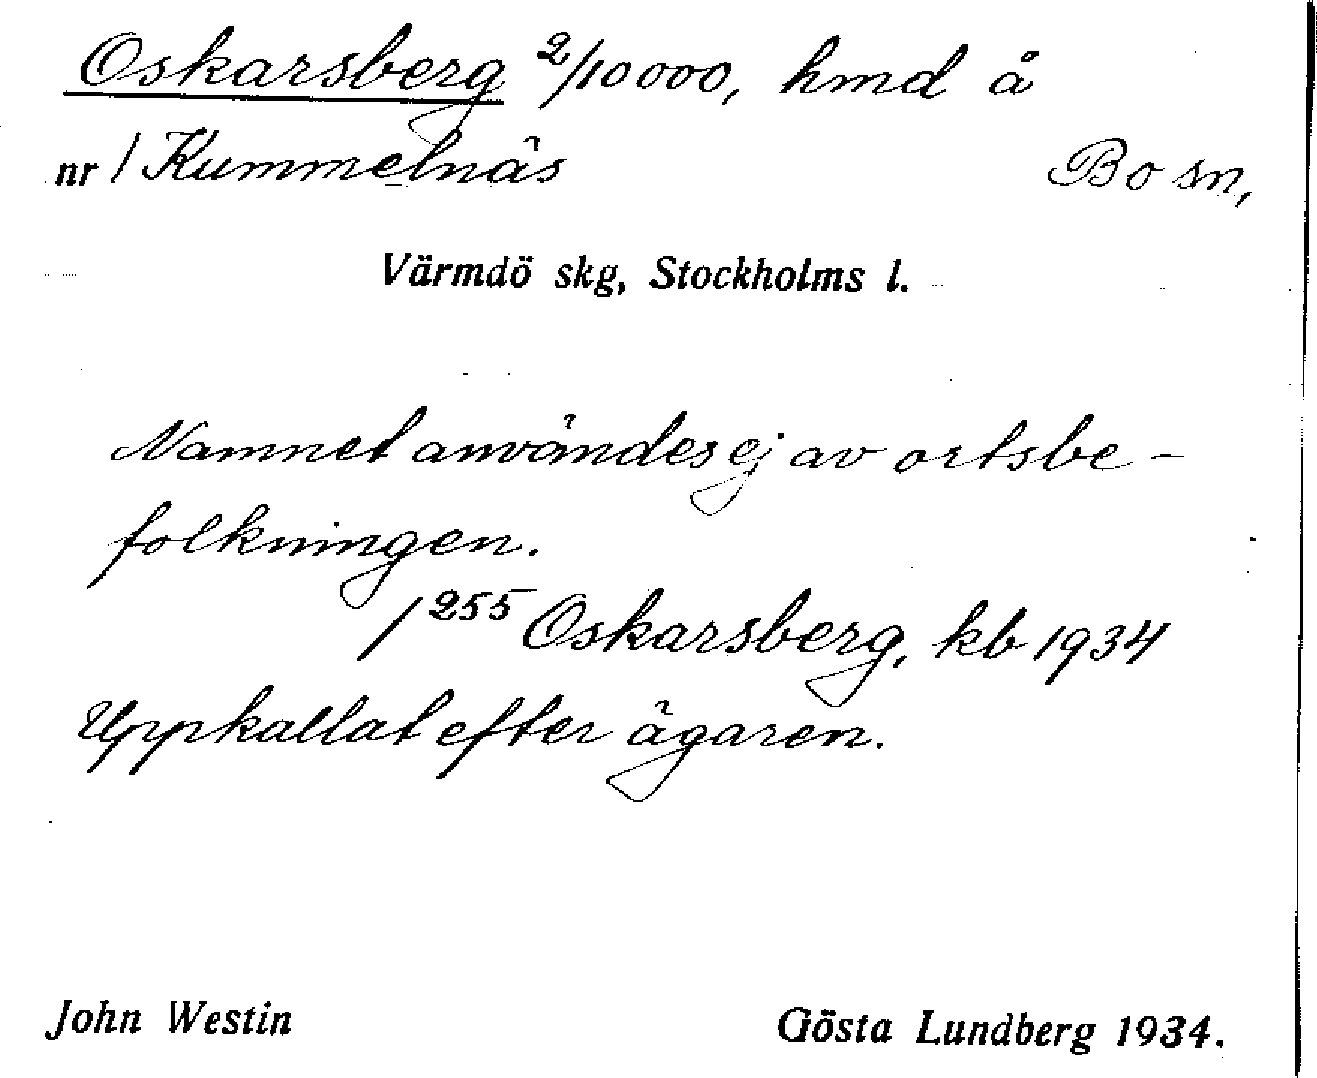 Oskarsberg 2/10000, hmd å
nr 1 Kummelnäs Bo sn,
Värmdö skg, Stockholms l.
Namnet användes ej av ortsbe-
folkningen.
1 255 Oskarsberg, kb 1934
Uppkallat efter ägaren.
John Westin Gösta Lundberg 1934.